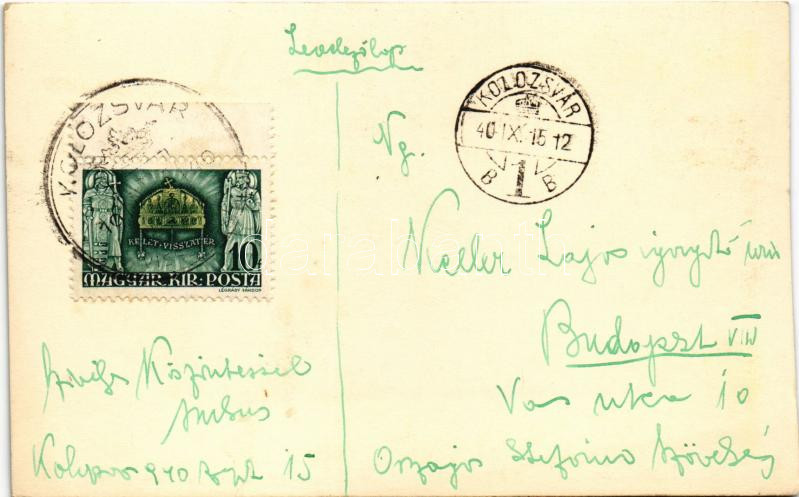 Levelezőlap
KOLOZSVÁR
KELET-VISSZATÉR
10
MAGYAR·KIR·POSTA
LÉGRÁDY SÁNDOR
KOLOZSVÁR
40·IX·15·12
B 1 B
Ng.
Keller Lajos úrnak
Budapest VIII
Vas utca 10
Országos Stefánia Szövetség
Szíves Köszöntéssel
940 szept 15